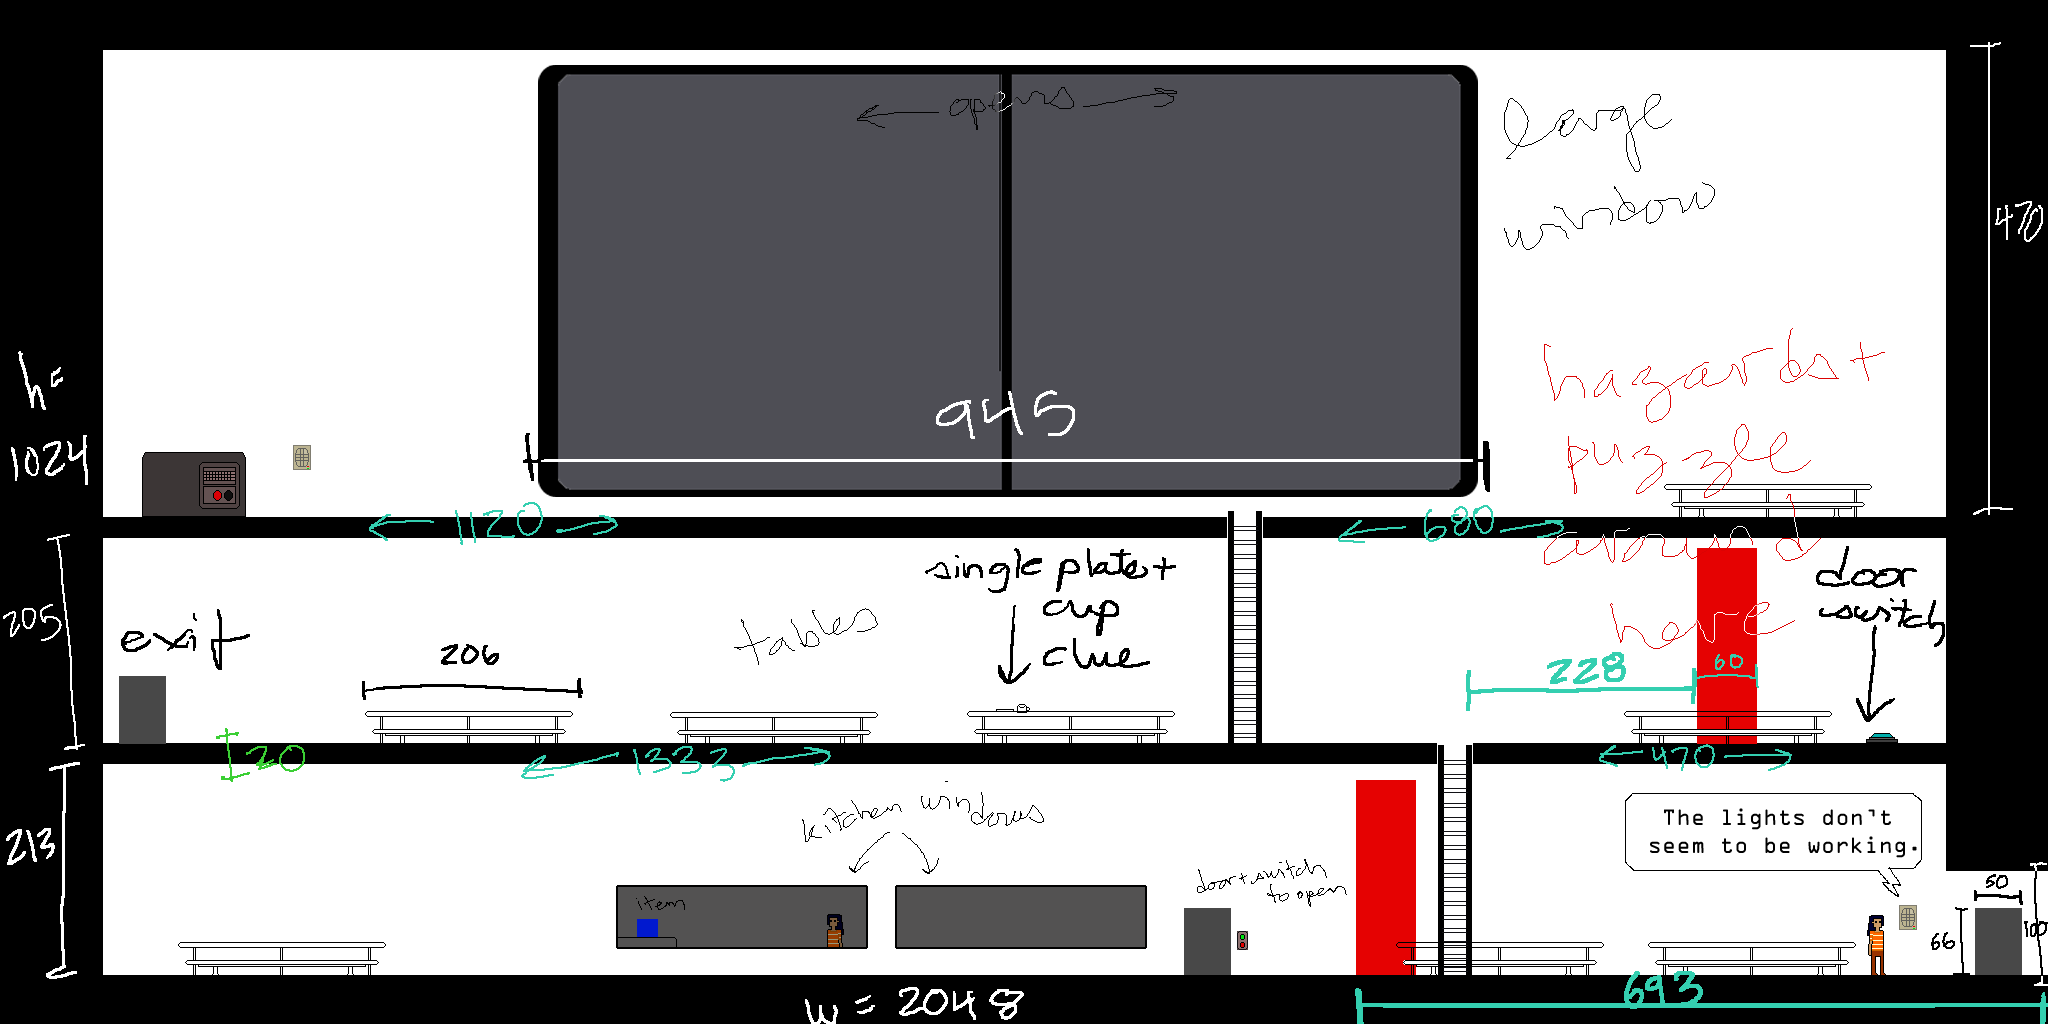 opens
large
window
470
h=
1024
945
hazards +
puzzle
around
here
1120
680
205
exit
206
tables
single plate +
cup
clue
228
60
door
switch
20
1333
470
213
kitchen windows
item
door + switch
to open
The lights don't
seem to be working.
50
66
100
693
w = 2048